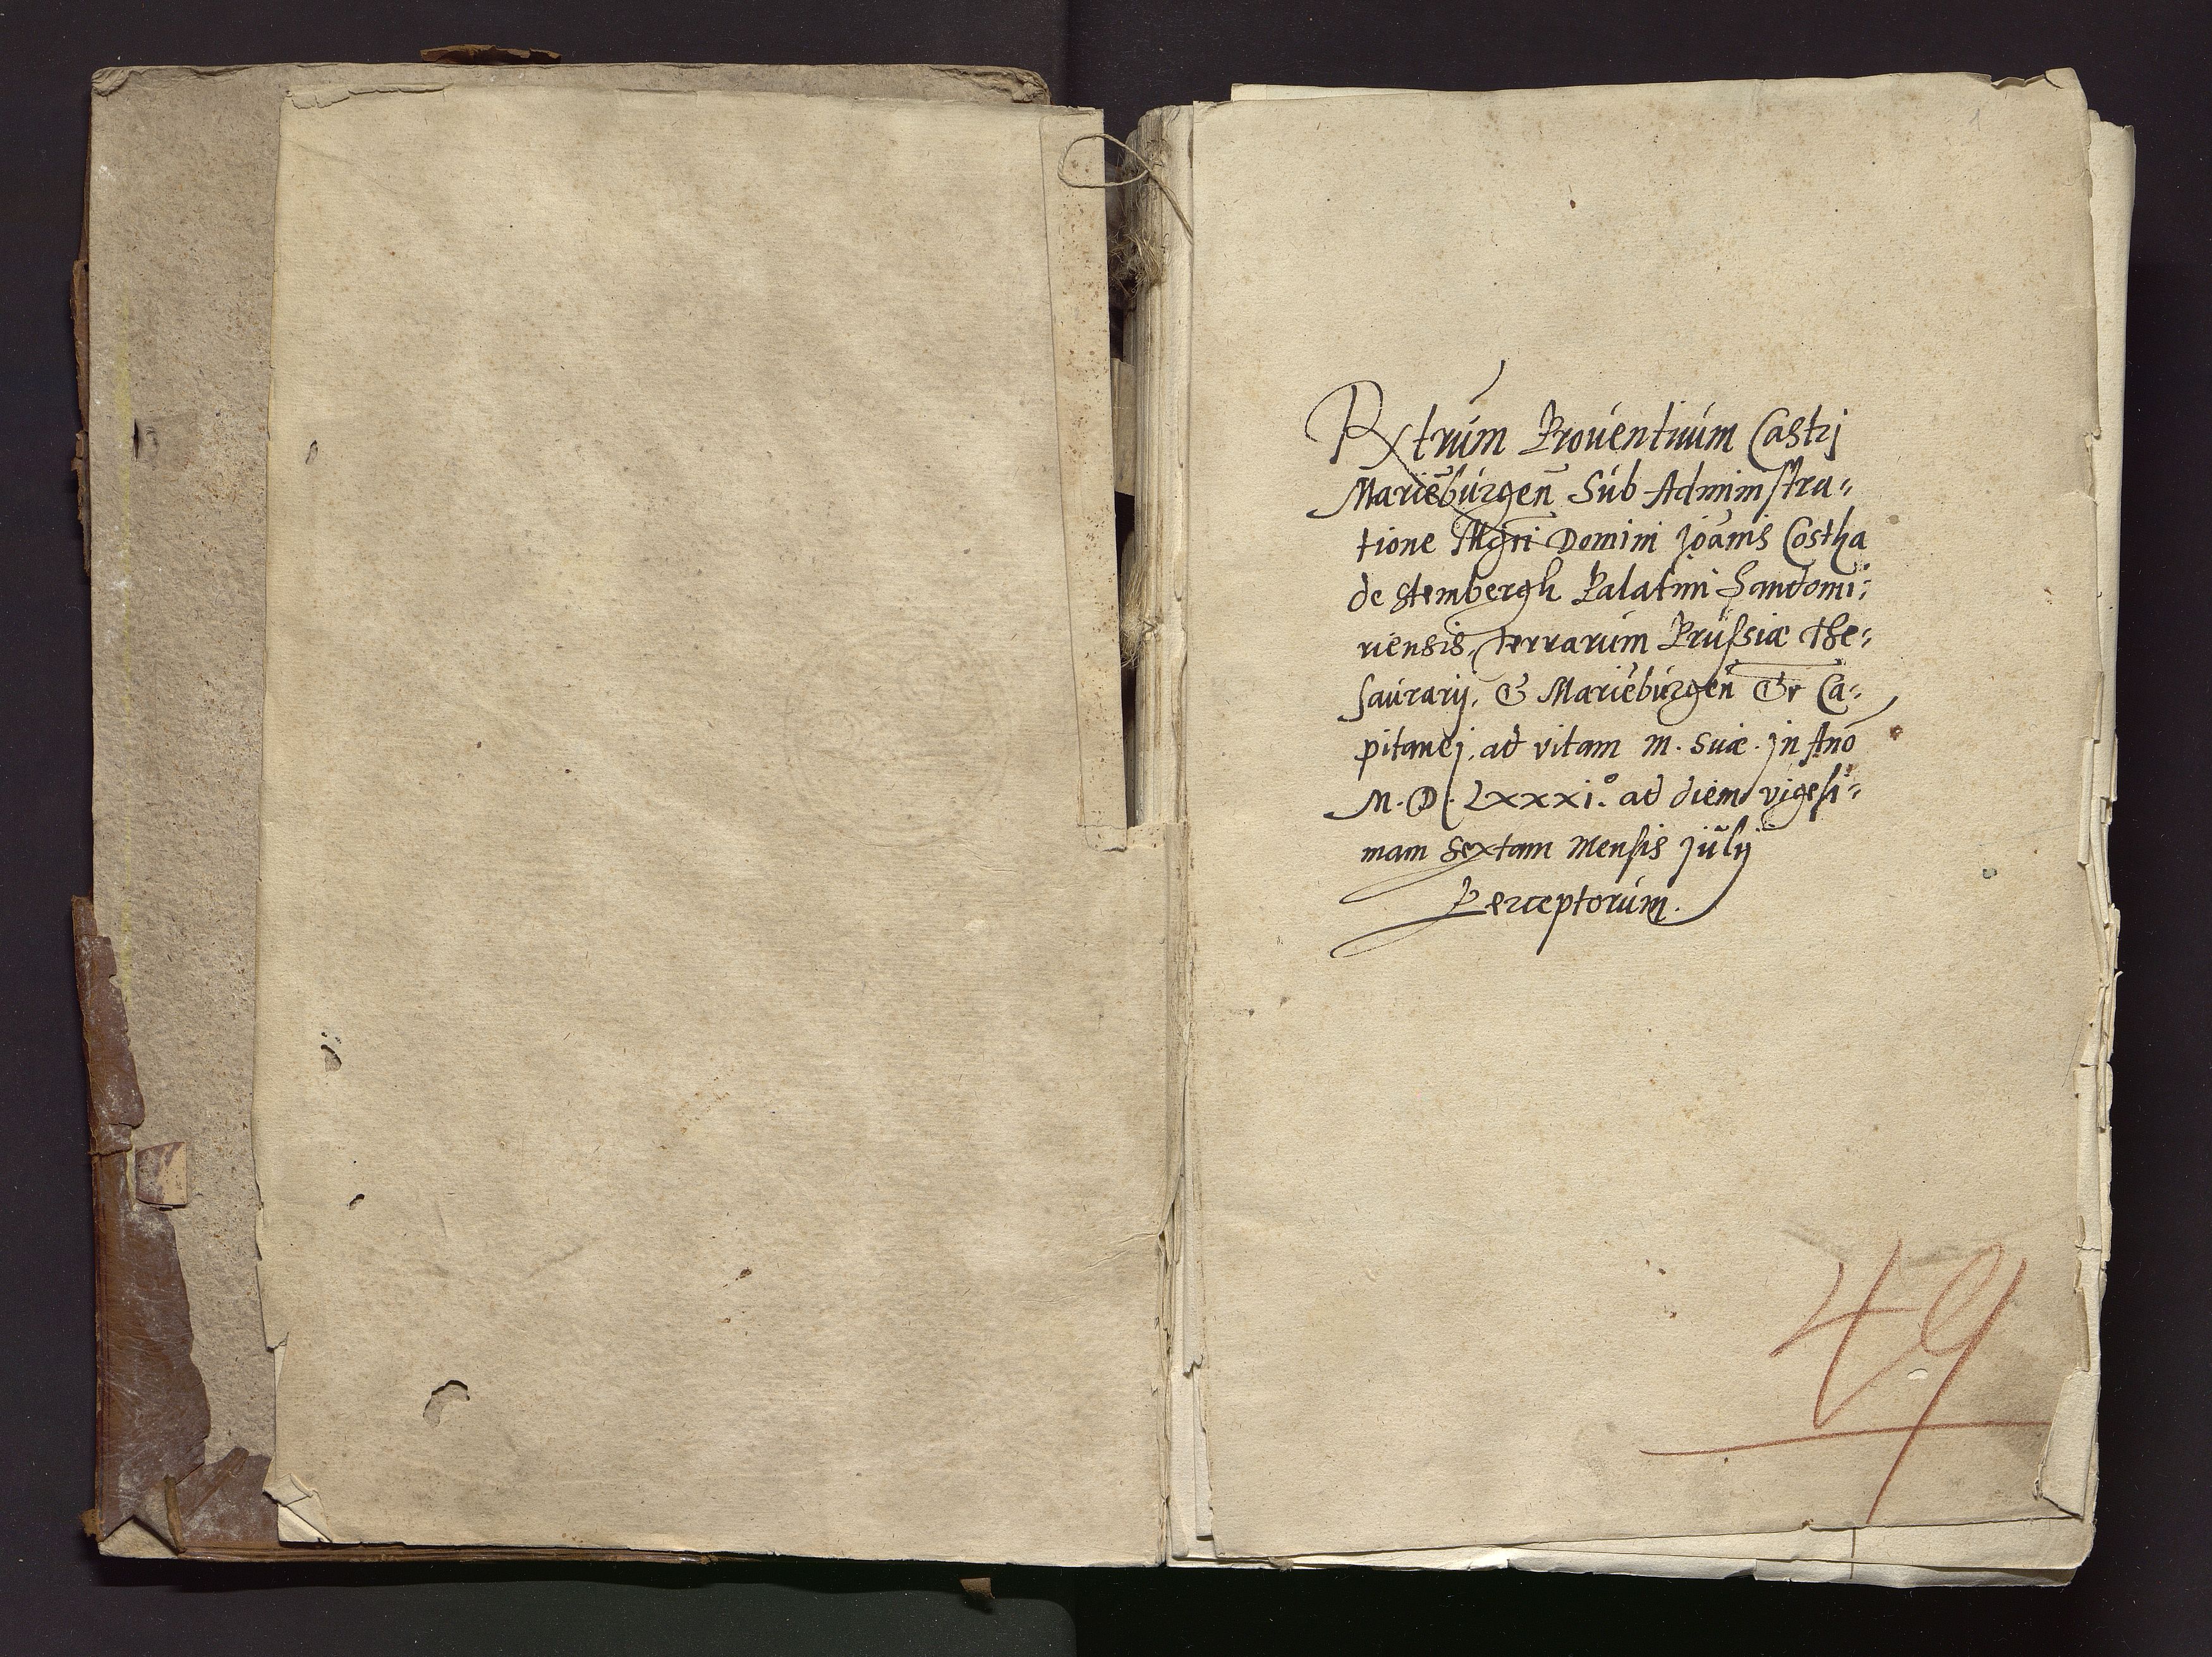 1
Rxtrum Prouentuum Castrj
Mariēburgeñ Sub Administra=
tione Mgci Domini Joānis Costha
de Stembergh Palatini Sandomi=
riensis, terrarum Prussiæ The=
saurarij, & Mariēburgeñ &c Ca=
pitanej, ad vitam M. Suæ. Jn Ano
M. D. LXXXI.° ad diem vigesi=
mam Sextam Mensis Julij
Perceptorum.
49